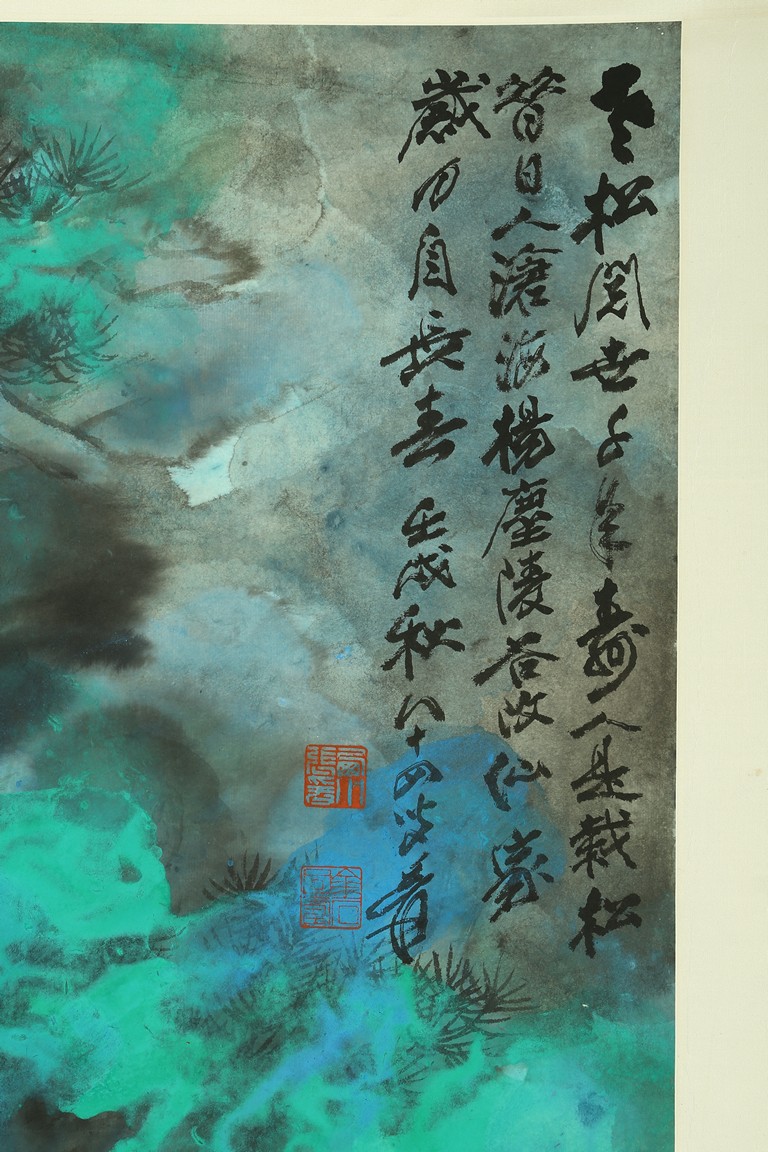 老松閱世千年壽人是栽松
昔日人滄海楊塵陵谷改仙家
歲月自長春 壬戌秋八十四叟爰